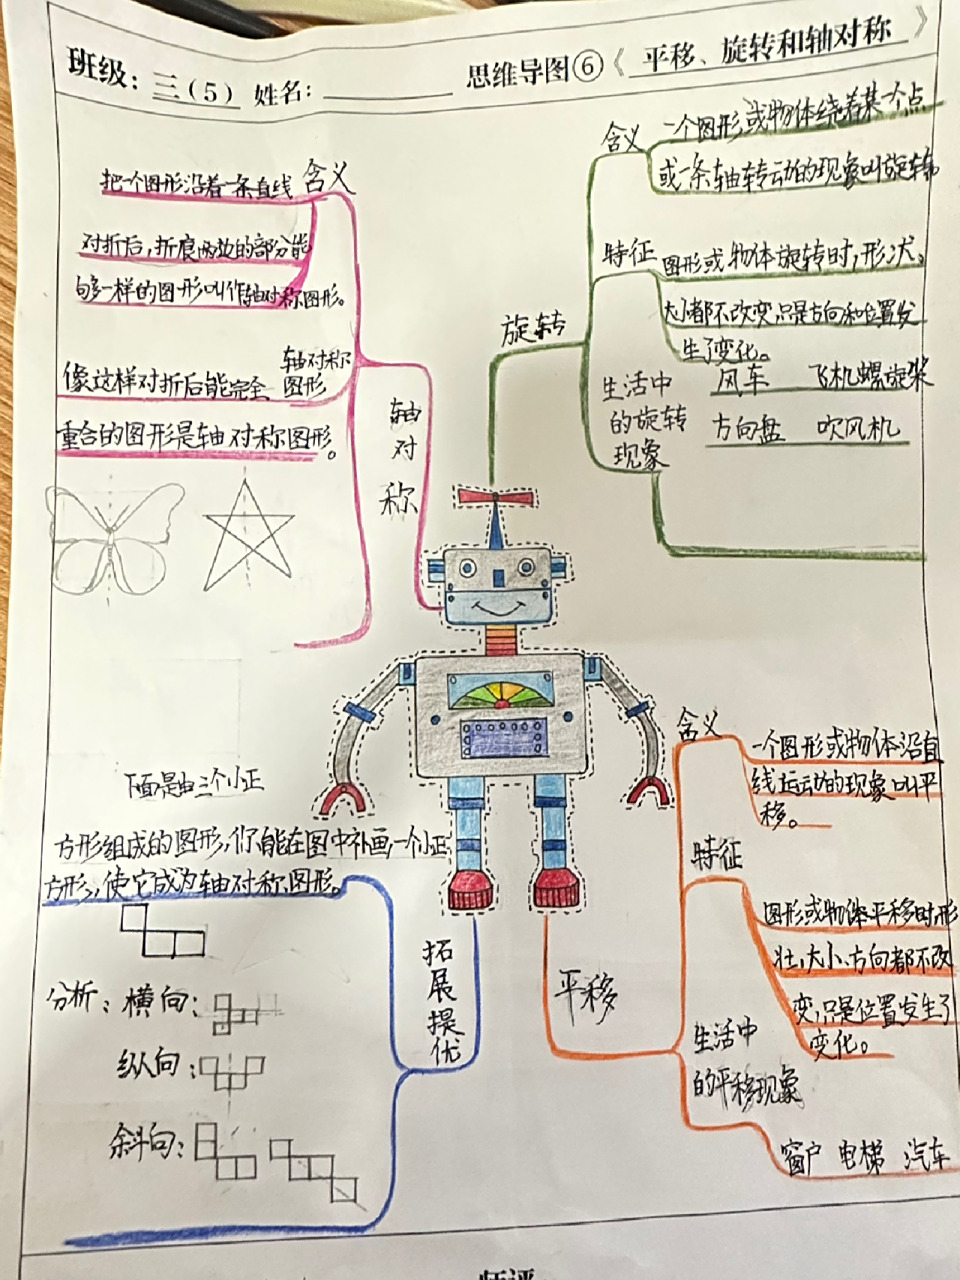 班级：三（5） 姓名：
思维导图⑥《 平移、旋转和轴对称 》
含义
把一个图形沿着一条直线
对折后，折痕两边的部分能
够一样的图形叫作轴对称图形。
轴对称
图形
像这样对折后能完全
重合的图形是轴对称图形。
轴对称
旋转
含义
一个图形或物体绕着某一个点
或一条轴转动的现象叫旋转
特征
图形或物体旋转时，形状。
大小都不改变只是方向和位置发
生了变化。
生活中
的旋转
现象
风车 飞机螺旋桨
方向盘 吹风机
下面是由三个小正
方形组成的图形，你能在图中补画一个小正
方形，使它成为轴对称图形。
分析：横向：
纵向：
斜向：
拓展提优
平移
含义
一个图形或物体沿直
线运动的现象叫平
移。
特征
图形或物体平移时形
壮，大小、方向都不改
变，只是位置发生了
变化。
生活中
的平移现象
窗户 电梯 汽车